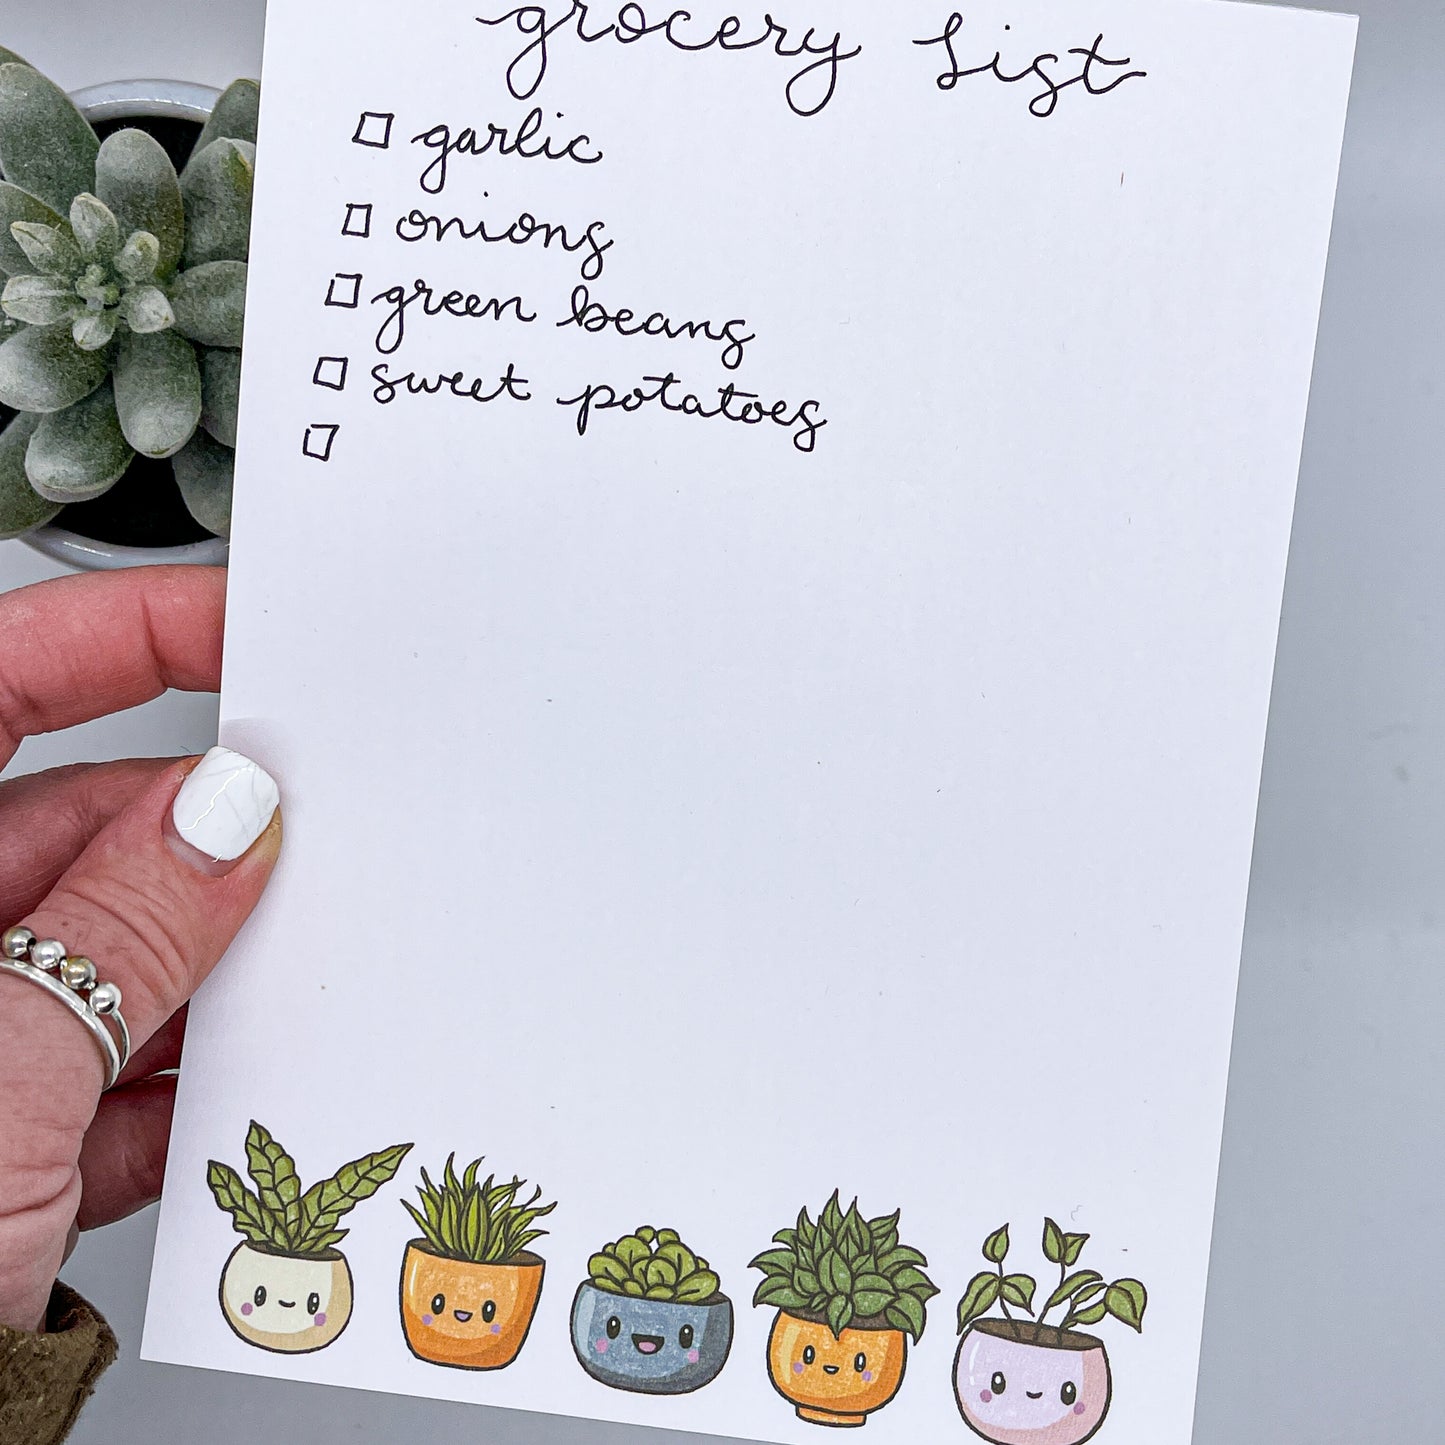 grocery list
garlic
onions
green beans
sweet potatoes